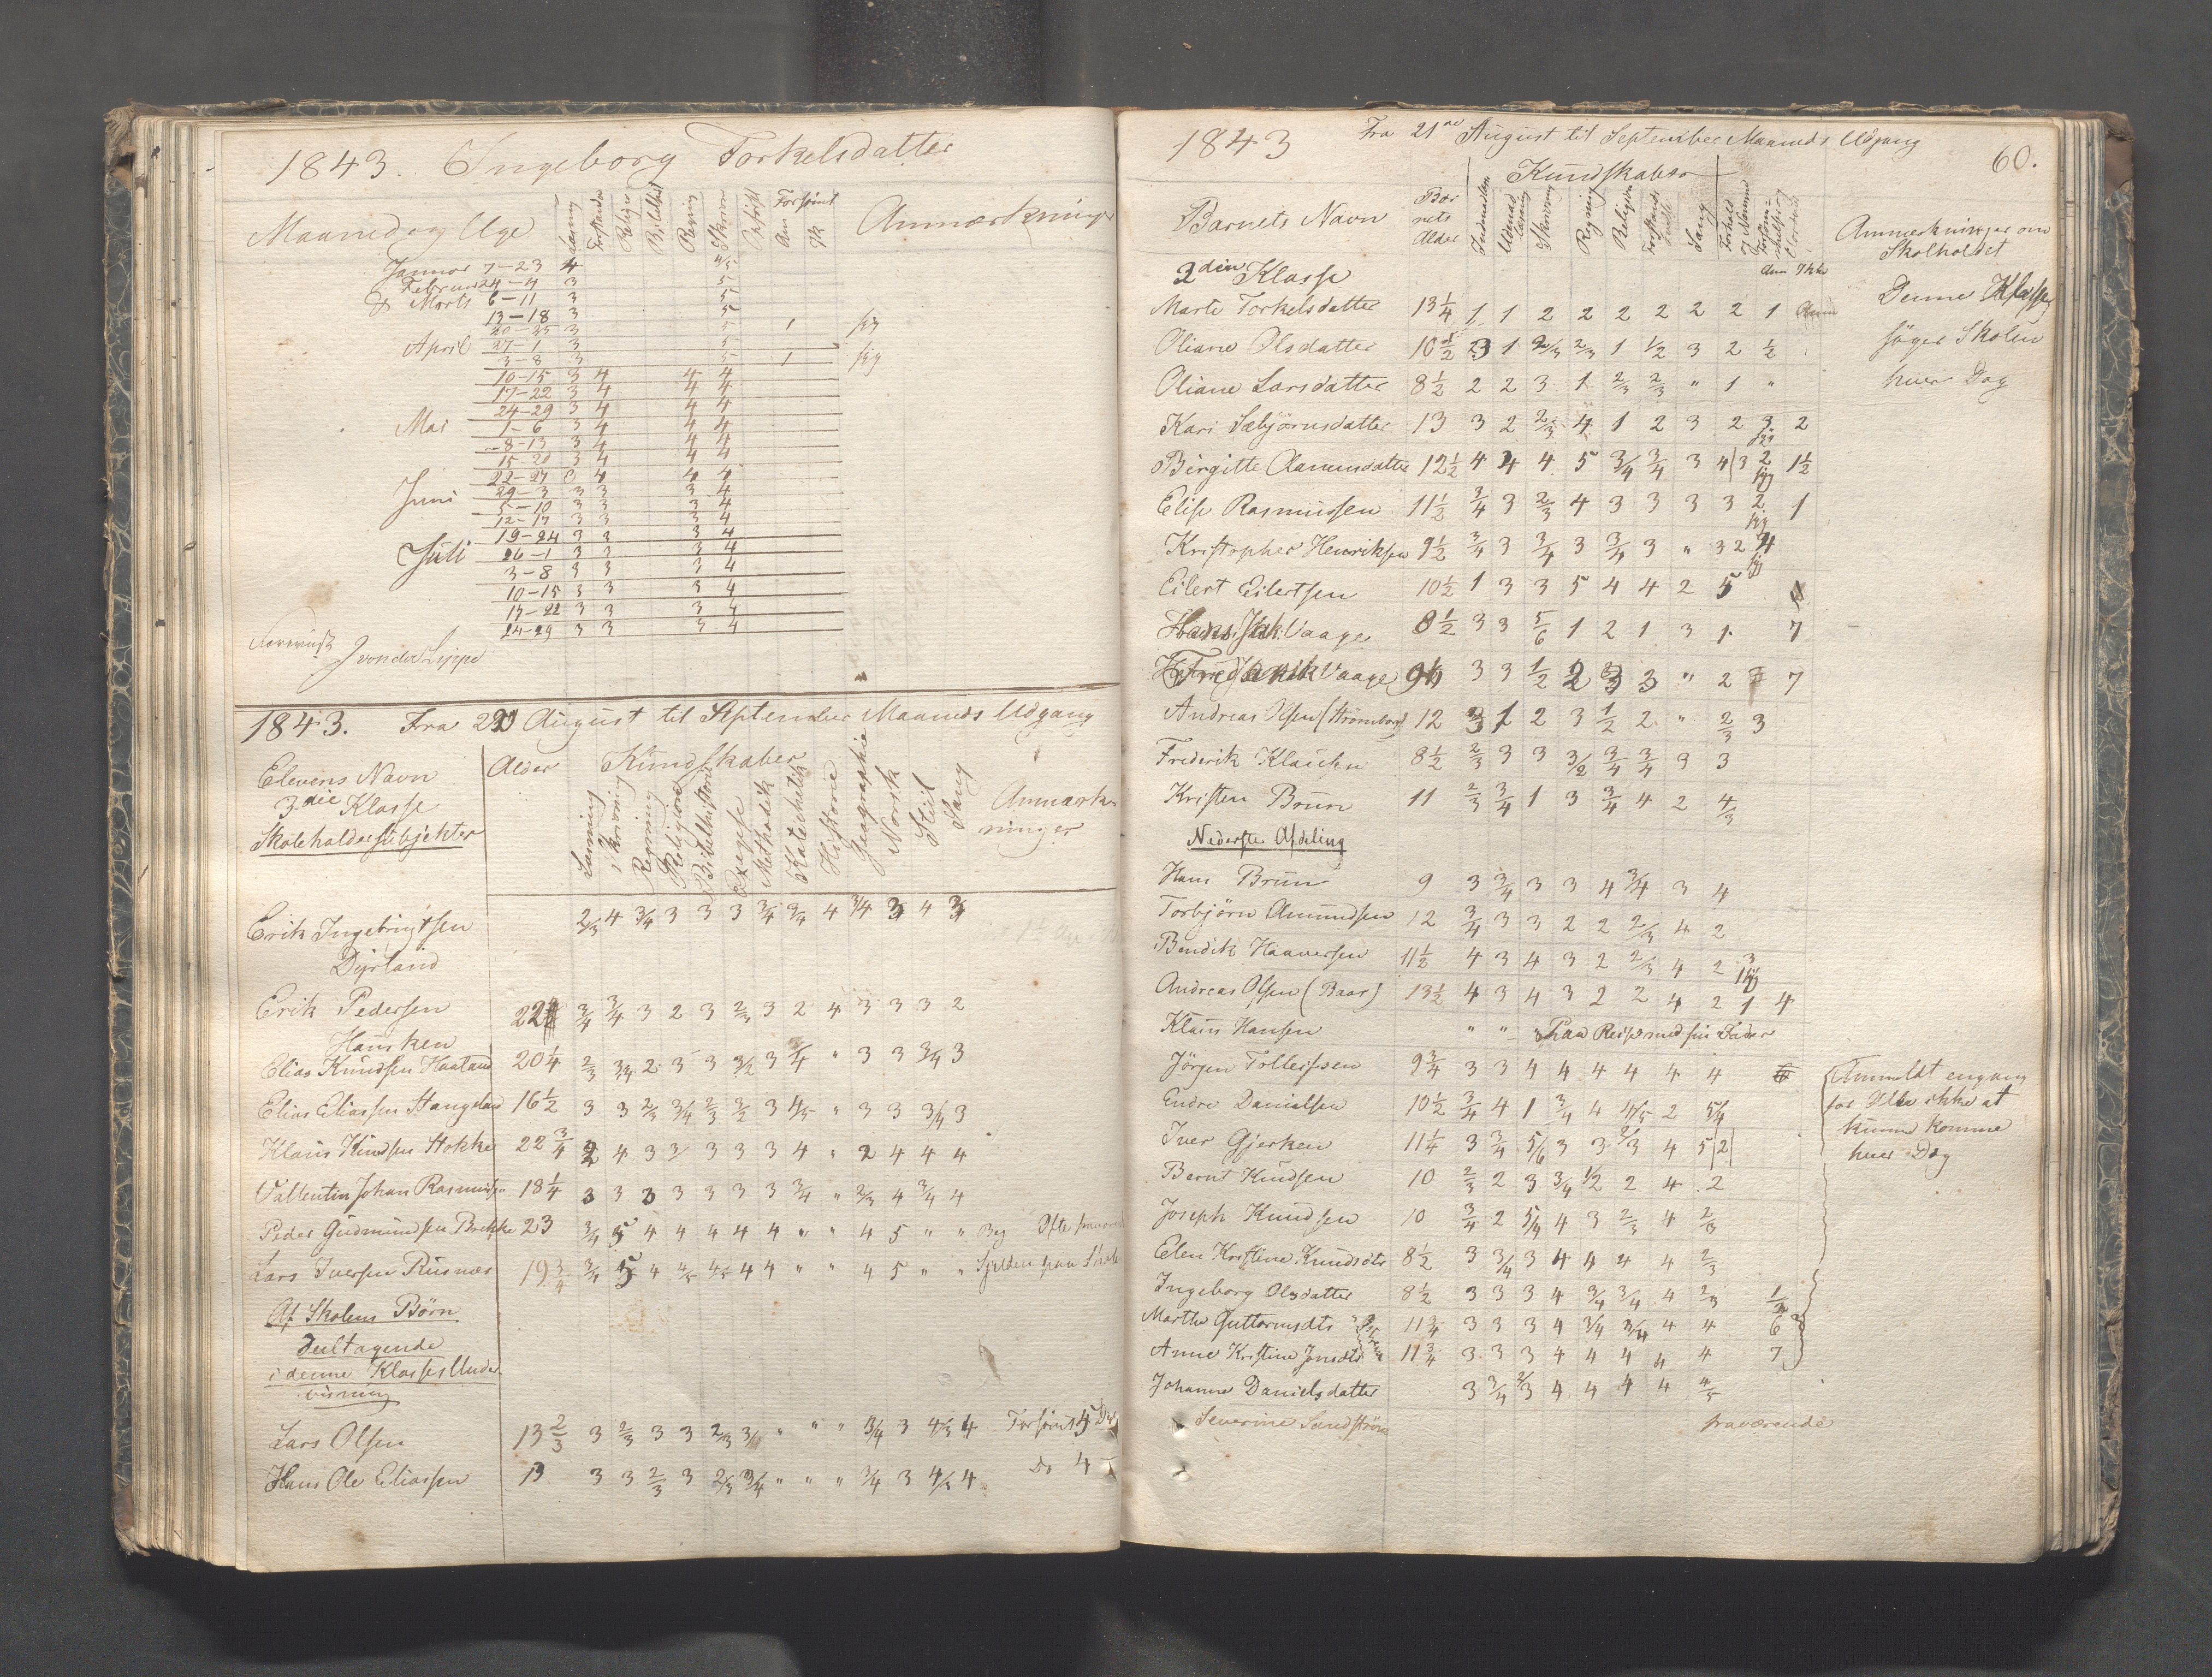 1843. Ingeborg Torkelsdatter
Maaned og Uge Læsning Religion Regning Skrivn Forsømt Anmærkninger
Januar 7-23 4 4/5
Februar 24-4 3 5
& Marts 6-11 3 5
13-18 3 5
20-25 3 5 1 syg
April 27-1 3 5
3-8 3 5 1 syg
10-15 3 4 4 4
17-22 3 4 4 4
24-29 3 4 4 4
Mai 1-6 3 4 4 4
8-13 3 4 4 4
15-20 3 4 4 4
22-27 3 4 4 4
Juni 29-3 3 3 3 4
5-10 3 3 3 4
12-17 3 3 3 4
19-24 3 3 3 4
Juli 26-1 3 3 3 4
3-8 3 3 3 4
10-15 3 3 3 4
17-22 3 3 3 4
24-29 3 3 3 4
J von der Lippe
1843. Fra 21 August til September Maaneds Udgang
Elevens Navn Alder Kundskaber
3die Klasse Anmærk-
Skoleholdersubjekter ninger
Læsning Skrivning Regning Religion Bibelhistorie Exegese Methodik Katechetik Historie Geographie Norsk Stiil Sang
Erik Ingebrigtsen 2/3 4 3/4 3 3 3 3/4 3/4 4 3/4 3 4 3
Dyrland
Erik Pedersen 22 3/4 3/4 3 2 3 2/3 3 2 4 3 3 3 2
Hausken
Elias Knudsen Haaland 20 1/4 2/3 3/4 2 3 3 3/2 3 " 3 3 3/4 3
Elias Eliassen Stangeland 16 1/2 3 3 2/3 3/4 2/3 3/2 3 4/5 " 3 3 3/4 3
Klaus Knudsen Stokke 22 3/4 4 3 3 3 3 3 4 " 2 4 4 4
Vallentin Johan Rasmussen 18 1/4 3 3 3 3 3 3 3 3/4 " 2/3 4 3/4 4
Peder Gudmundsen Brekke 23 3/4 5 4 4 4 4 4 " " 4 5 " " Ofte
Lars Iversen Riisnæs 19 3/4 3/4 5 4 4/5 4/5 4 4 " " 4 5 " " Sjelden paa Skole
Af Skolens Börn
Deeltagende
i denne Klasses Under-
visning
Lars Olsen 13 2/3 3 2/3 3 3 2/3 " " " 3/4 3 4/3 4 Forsömt 5
Hans Ole Eliassen 13 3 3 2/3 3 2/3 3/4 " " " 3/4 3 4/3 4 Do 4
1843 Fra 21de August til September Maaneds Udgang 60.
Kundskaber
Barnets Navn Bör-
nets
Alder
Skrivning Regning Religion Sang Forhold
Anmerkninger om
Skoleholdet
2den Klasse
Marte Torkelsdatter 13 1/4 1 1 2 2 2 2 2 2 1
Denne Klasse
Oliane Olsdatter 10 1/2 3 1 2/3 2/3 1 1/2 3 2 1/2
söger Skolen
Oliane Larsdatter 8 1/2 2 2 3 1 2/3 2/3 " 1 "
hver Dag
Kari Sæbjörnsdatter 13 3 2 2/3 4 1 2 3 2 3 2
Birgitte Aanensdatter 12 1/2 4 4 4 5 3/4 3/4 3 4 3 2 syg 1 1/2
Elise Rasmussen 11 1/2 3/4 3 2/3 4 3 3 3 3 2 syg 1
Kristopher Henriksen 9 1/2 3/4 3 3/4 3 3/4 3 " 3 2 4 syg
Eilert Eilertsen 10 1/2 1 3 3 5 4 4 2 5
Hans Vaage 8 1/2 3 3 5/6 1 2 1 3 1 7
Vaage 9 3 3 1/2 2 3 3 " 2 7
Andreas Olsen (Strömborg) 12 3 1 2 3 1/2 2 " 2/3 3
Frederik Klausen 8 1/2 2/3 3 3 3/2 3/4 3/4 3 3
Kristen Brun 11 2/3 3/4 1 3 3/4 4 2 4/3
Nederste Afdeling
Hans Brun 9 3 3/4 3 3 4 3/4 3 4
Torbjörn Amundsen 12 3/4 3 3 2 2 2/3 4 2
Bendik Haaversen 11 1/2 4 3 4 3 2 2/3 4 2 3 syg
Andreas Olsen (Baar) 13 1/2 4 3 4 3 2 2 4 2 1 4
Klaus Hansen " " " Paa Reise med sin Fader
Jörgen Tollefsen 9 3/4 3 3 4 4 4 4 4 4
Anmeldt engang
Endre Danielsen 10 1/2 3/4 4 1 3/4 4 4/5 2 5/4
for Alle ikke at
Iver Gjerken 11 1/4 3 3/4 5/6 3 3 2/3 4 5 2
kunne komme
Bernt Knudsen 10 2/3 2 3 3/4 1/2 2 4 2
hver Dag
Joseph Knudsen 10 3/4 2 5/4 4 3 2/3 4 2/3
Elen Kristine Knudsdtr 8 1/2 3 3/4 3 4 4 4 4 2/3
Ingeborg Olsdatter 8 1/2 3 3 3 4 3/4 3/4 4 2/3 1/2
Marthe Guttormsdtr 11 3/4 3 3 3 4 3/4 3/4 4 4 6
Anne Kristine Jonsdtr 11 3/4 3 3 3 4 4 4 4 4 7
Johanne Danielsdatter 3 3/4 2/3 4 4 4 4 4/5
Severine Sundström fraværende